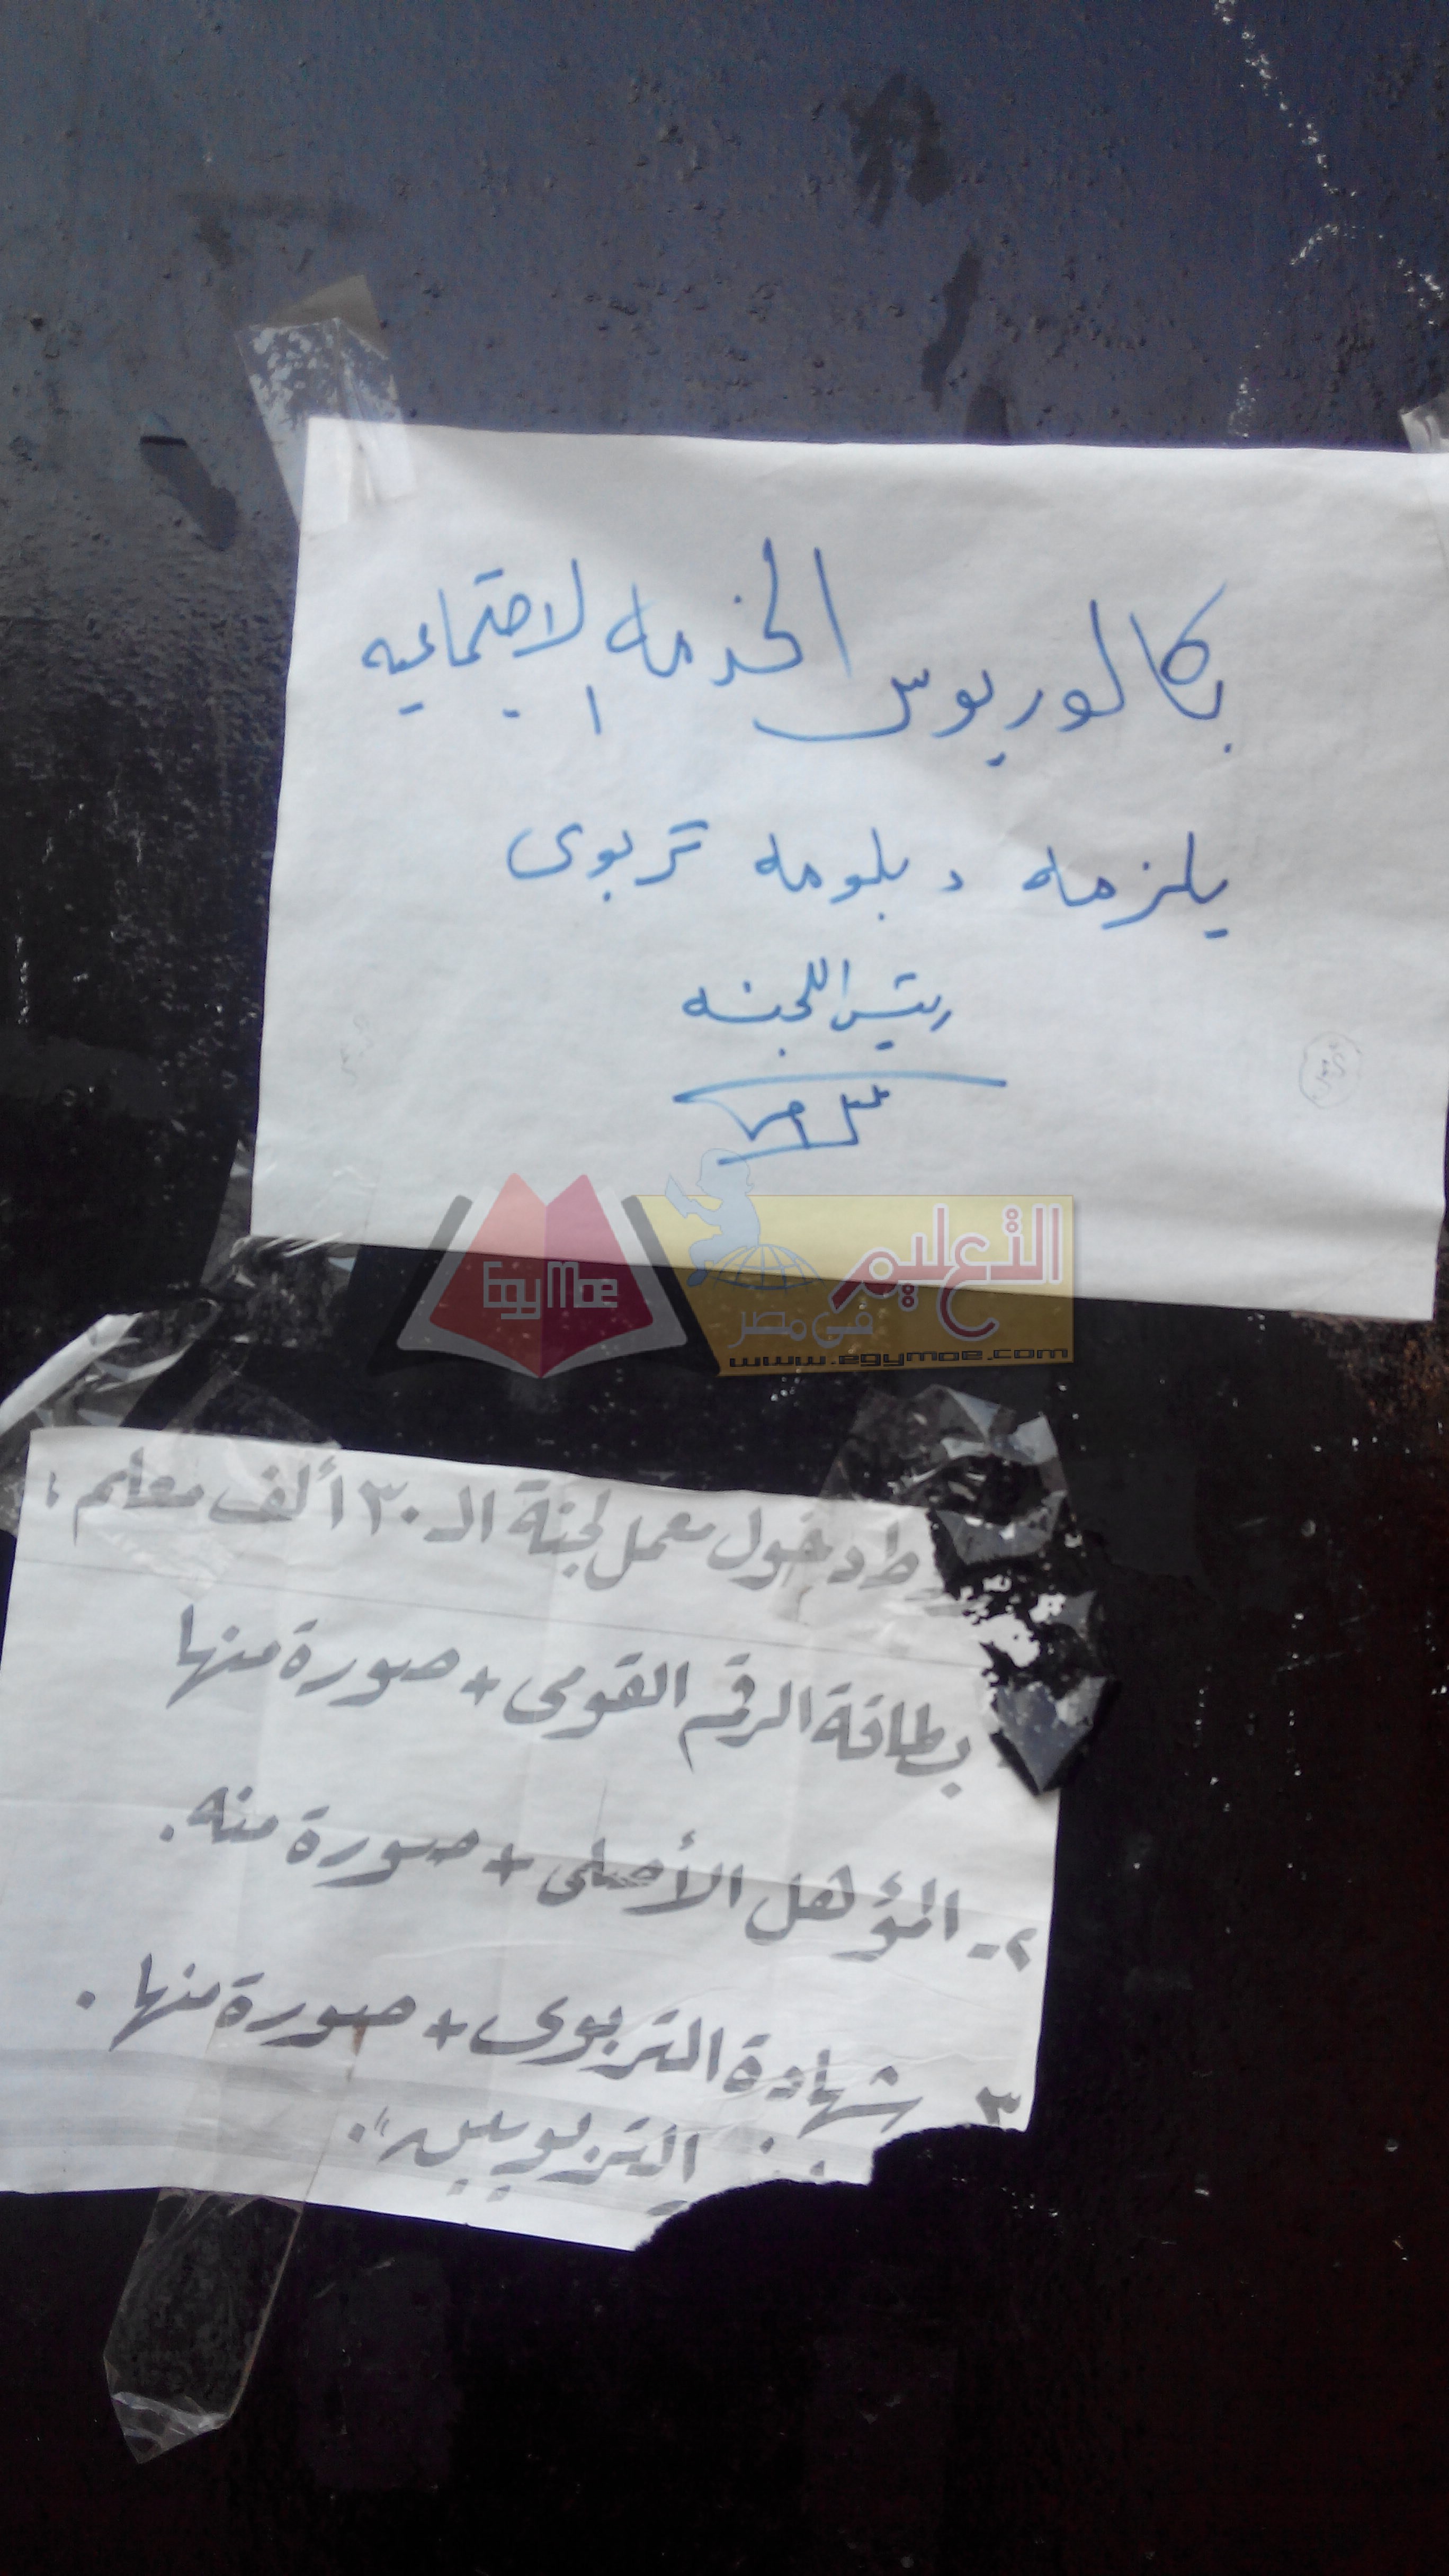 بكالوريوس الخدمه الاجتماعيه
يلزمه دبلومه تربوى
رئيس اللجنه
EgyMoe
التعليم
فى مصر
www.egymoe.com
ط دخول معمل لجنة الـ ٣٠ ألف معلم :
بطاقة الرقم القومى + صورة منها
٢- المؤهل الأصلى + صورة منه .
٣ شهادة التربوى + صورة منها .
التربويين" .